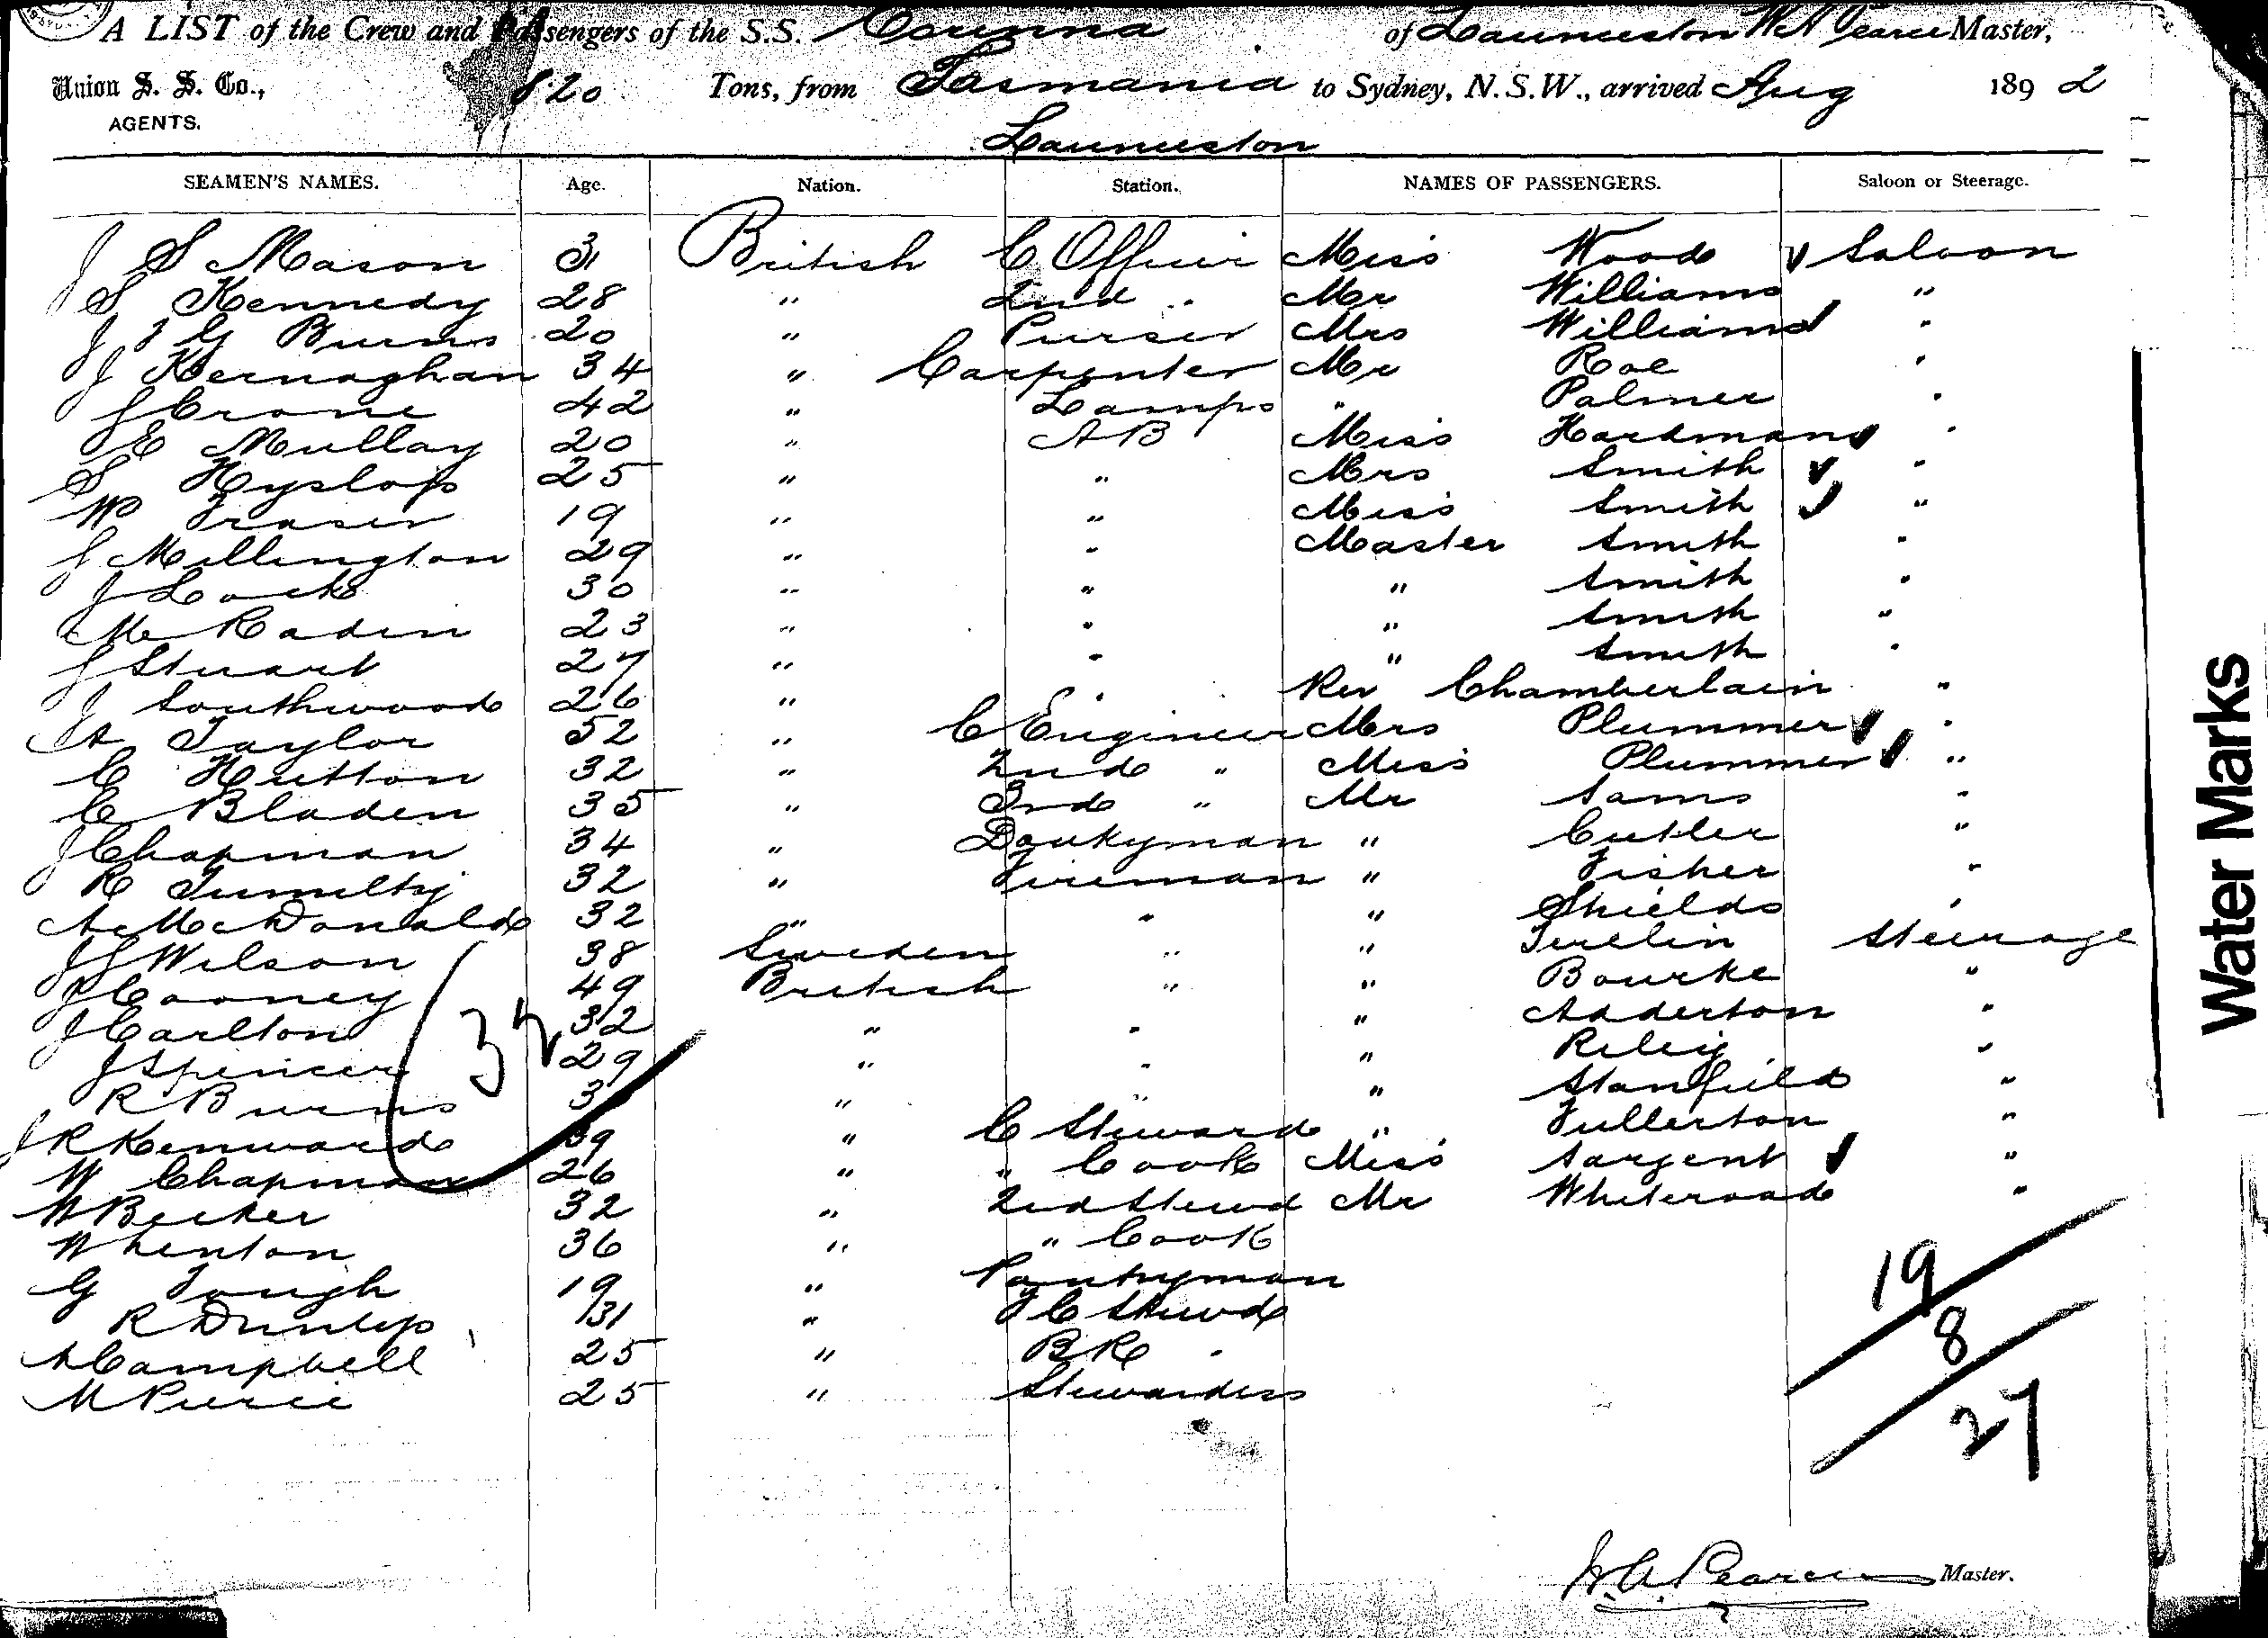 A LIST of the Crew and Passengers of the S.S. Corinna of Launceston W A Pearce Master,
Union S. S. Co., 820 Tons, from Tasmania to Sydney, N.S.W., arrived Aug 1892
AGENTS.
Launceston
SEAMEN'S NAMES. Age. Nation. Station. NAMES OF PASSENGERS. Saloon or Steerage.
J S Mason 31 British C Officer Miss Wood Saloon
S Kennedy 28 " 2nd " Mr Williams "
J J G Burns 20 " Purser Mrs Williams "
J Kernaghan 34 " Carpenter Mr Roe "
J Crone 42 " Lamps " Palmer "
E Mullay 20 " AB Miss Hardman "
S Hyslop 25 " " Mrs Smith "
W Fraser 19 " " Miss Smith "
J Millington 29 " " Master Smith "
J Lock 30 " " " Smith "
Mc Radin 23 " " " Smith "
J Stuart 27 " " " Smith "
J Southwood 26 " " Rev Chamberlain "
A Taylor 52 " C Engineer Mrs Plummer "
C Hutton 32 " 2nd " Miss Plummer "
C Bladen 35 " 3rd " Mr Sams "
J Chapman 34 " Donkyman " Cutler "
R Tumilty 32 " Fireman " Fisher "
A McDonald 32 " " " Shields "
J J Wilson 38 Sweden " " Steerage
J Cooney 49 British " " Bourke "
J Carlton 32 " " " Adderton "
J Spencer 29 " " " Riley "
R Burns 3 " " " Stanfield "
J R Kenward 39 " C Steward " Fullerton "
W Chapman 26 " " Cook Miss Sargent "
W Becker 32 " 2nd Stewd Mr Whiteroad "
W Henton 36 " " Cook
G Tough 19 " Pantryman
R Dunlop 31 " F C Stewd
A Campbell 25 " B R "
M Pierce 25 " Stewardess
32
19
8
27
W. A. Pearce Master.
Water Marks